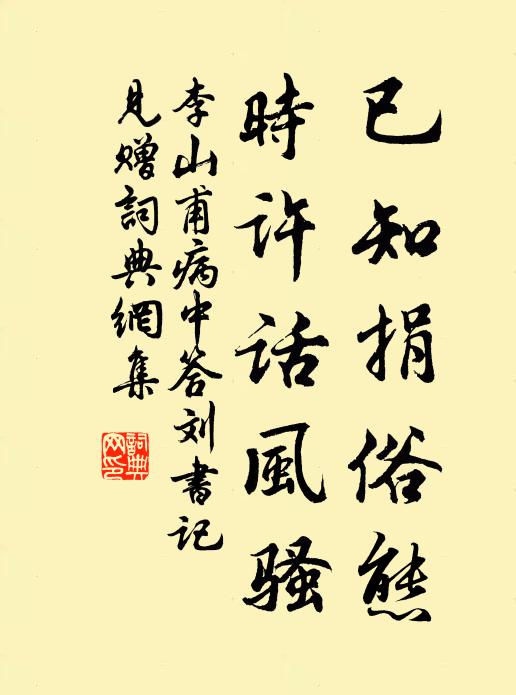 已知捐俗態
時許話風骚
李山甫病中答刘書记
見贈詞典網集
詞典
网印